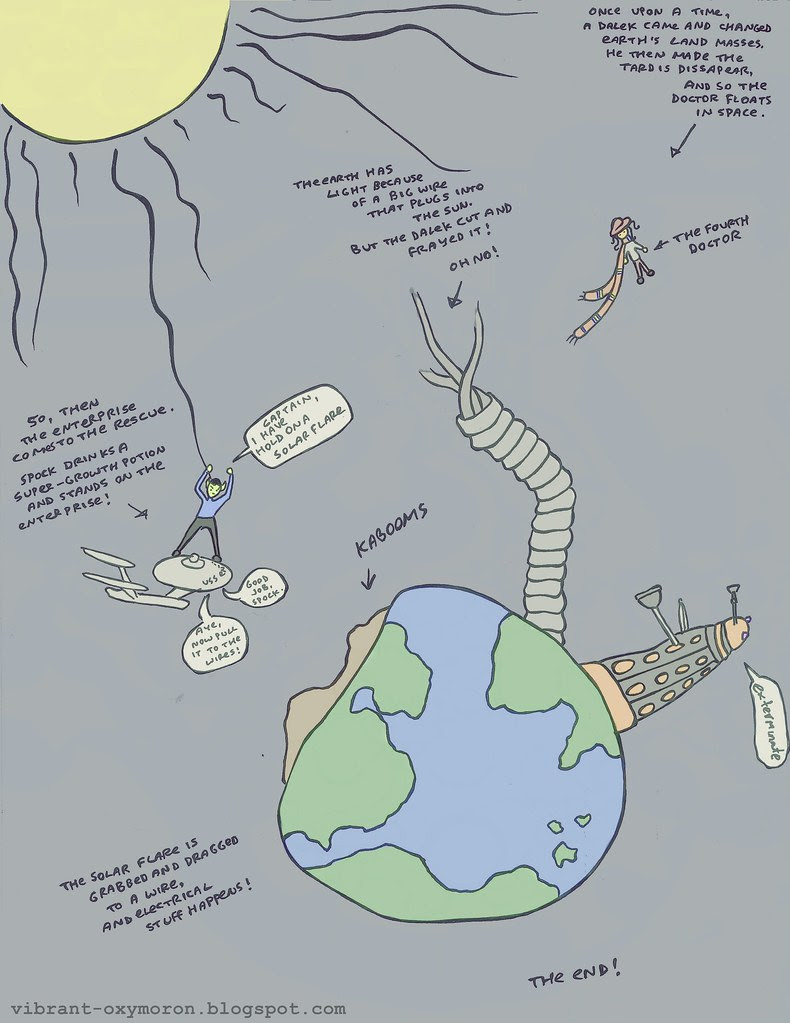 ONCE UPON A TIME,
A DALEK CAME AND CHANGED
EARTH'S LAND MASSES.
HE THEN MADE THE
TARDIS DISSAPEAR,
AND SO THE
DOCTOR FLOATS
IN SPACE.
THE FOURTH
DOCTOR
THE EARTH HAS
LIGHT BECAUSE
OF A BIG WIRE
THAT PLUGS INTO
THE SUN.
BUT THE DALEK CUT AND
FRAYED IT!
OH NO!
SO, THEN
THE ENTERPRISE
COMES TO THE RESCUE.
SPOCK DRINKS A
SUPER-GROWTH POTION
AND STANDS ON THE
ENTERPRISE!
CAPTAIN,
I HAVE
HOLD ON A
SOLAR FLARE
USS
GOOD
JOB,
SPOCK.
AYE,
NOW PULL
IT TO THE
WIRES!
KABOOMS
exterminate
THE SOLAR FLARE IS
GRABBED AND DRAGGED
TO A WIRE,
AND ELECTRICAL
STUFF HAPPENS!
THE END!
vibrant-oxymoron.blogspot.com